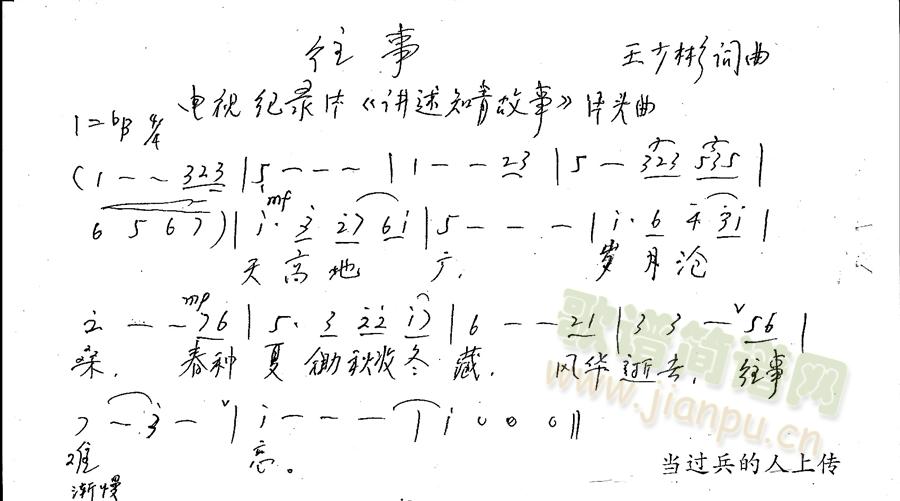 往事
王少彬词曲
电视纪录片《讲述知青故事》片头曲
1=bB 4/4
(1 - - 323 | 5 - - - | 1 - - 23 | 5 - 323 535 |
mf
6 5 6 7 ) | i· 3 27 6i | 5 - - - | i· 6 4 3i |
天高地广. 岁月沧
mp
2 - - 76 | 5· 3 22 i7 | 6 - - 21 | 3 3 - ∨ 56 |
桑. 春种夏锄秋收冬藏. 风华逝去. 往事
7 - 3 - ∨ | i - - - | i 0 0 0 ‖
难忘。
渐慢
歌谱简谱网
www.jianpu.cn
当过兵的人上传